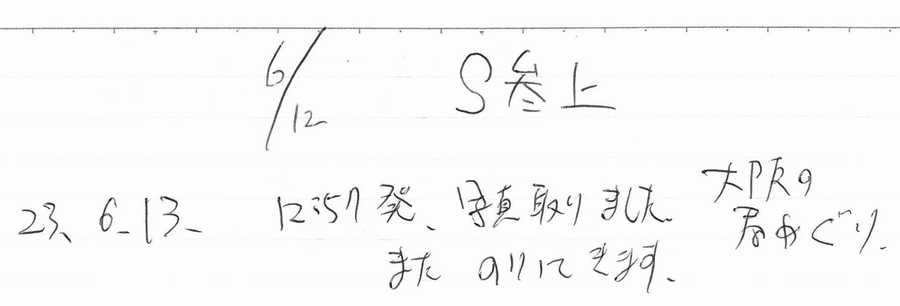 6/12 S参上
23.6.13. 12:57発、写真取りました
また のりにきます.
大阪の
めぐり.